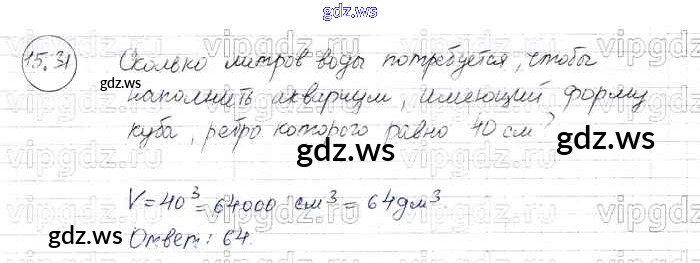 gdz.ws
15.31 Сколько литров воды потребуется, чтобы
gdz.ws
наполнить аквариум, имеющий форму
куба, ребро которого равно 40 см?
gdz.ws
V=40³=64000 см³=64дм³.
gdz.ws
gdz.ws
Ответ: 64.